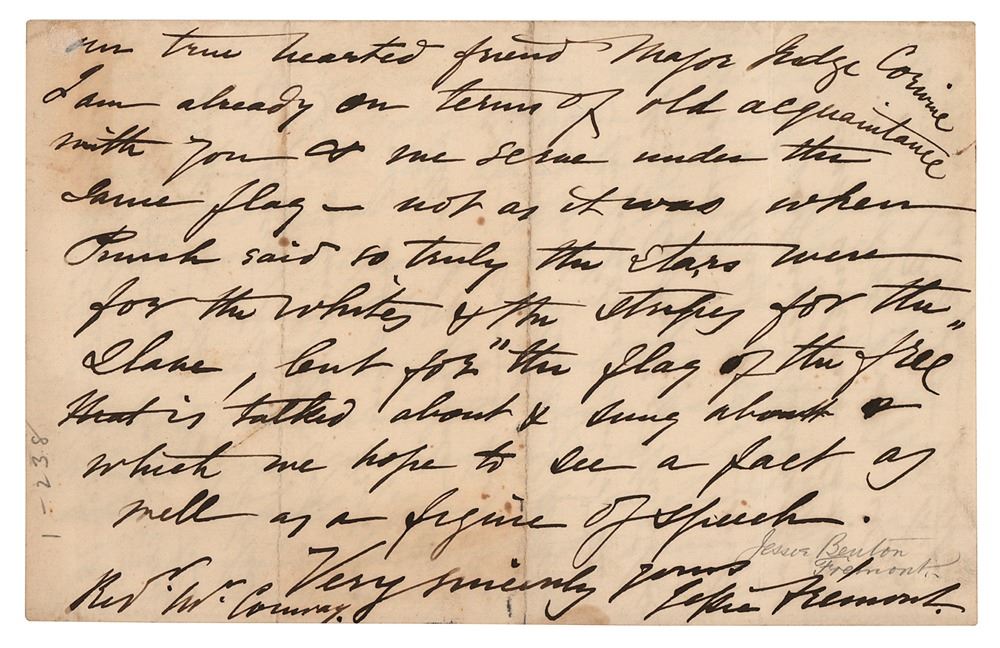 our true hearted friend Major Judge Corwine
I am already on terms of old acquaintance
with you & we serve under the
same flag — not as it was when
Punch said so truly the stars were
for the whites & the stripes for the
slave, but for "the flag of the free"
that is talked about & sung about &
which we hope to see a fact as
well as a figure of speech.
Very sincerely yours
Jessie Fremont.
Revd. Mr. Conway.
Jessie Benton
Fremont.
1-238